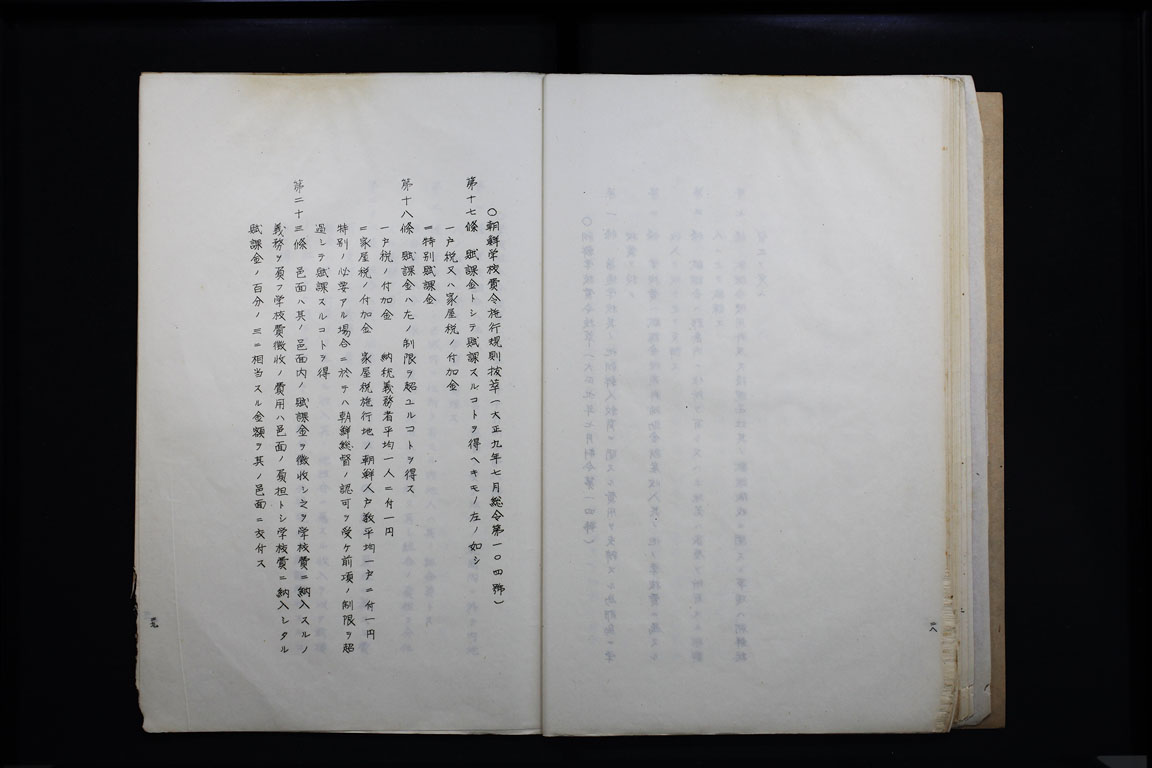 二八
○朝鮮学校費令施行規則抜萃(大正九年七月総令第一〇四號)
第十七條 賦課金トシテ賦課スルコトヲ得ヘキモノ左ノ如シ
一戸税又ハ家屋税ノ付加金
二特別賦課金
第十八條 賦課金ハ左ノ制限ヲ超ユルコトヲ得ス
一戸税ノ付加金 納税義務者平均一人ニ付一円
二家屋税ノ付加金 家屋税施行地ノ朝鮮人戸数平均一戸ニ付一円
特別ノ必要アル場合ニ於テハ朝鮮総督ノ認可ヲ受ケ前項ノ制限ヲ超
過シテ賦課スルコトヲ得
第二十三條 邑面ハ其ノ邑面内ノ賦課金ヲ徴收シ之ヲ学校費ニ納入スルノ
義務ヲ負フ学校費徴收ノ費用ハ邑面ノ負担トシ学校費ニ納入シタル
賦課金ノ百分ノ三ニ相当スル金額ヲ其ノ邑面ニ交付ス
二九